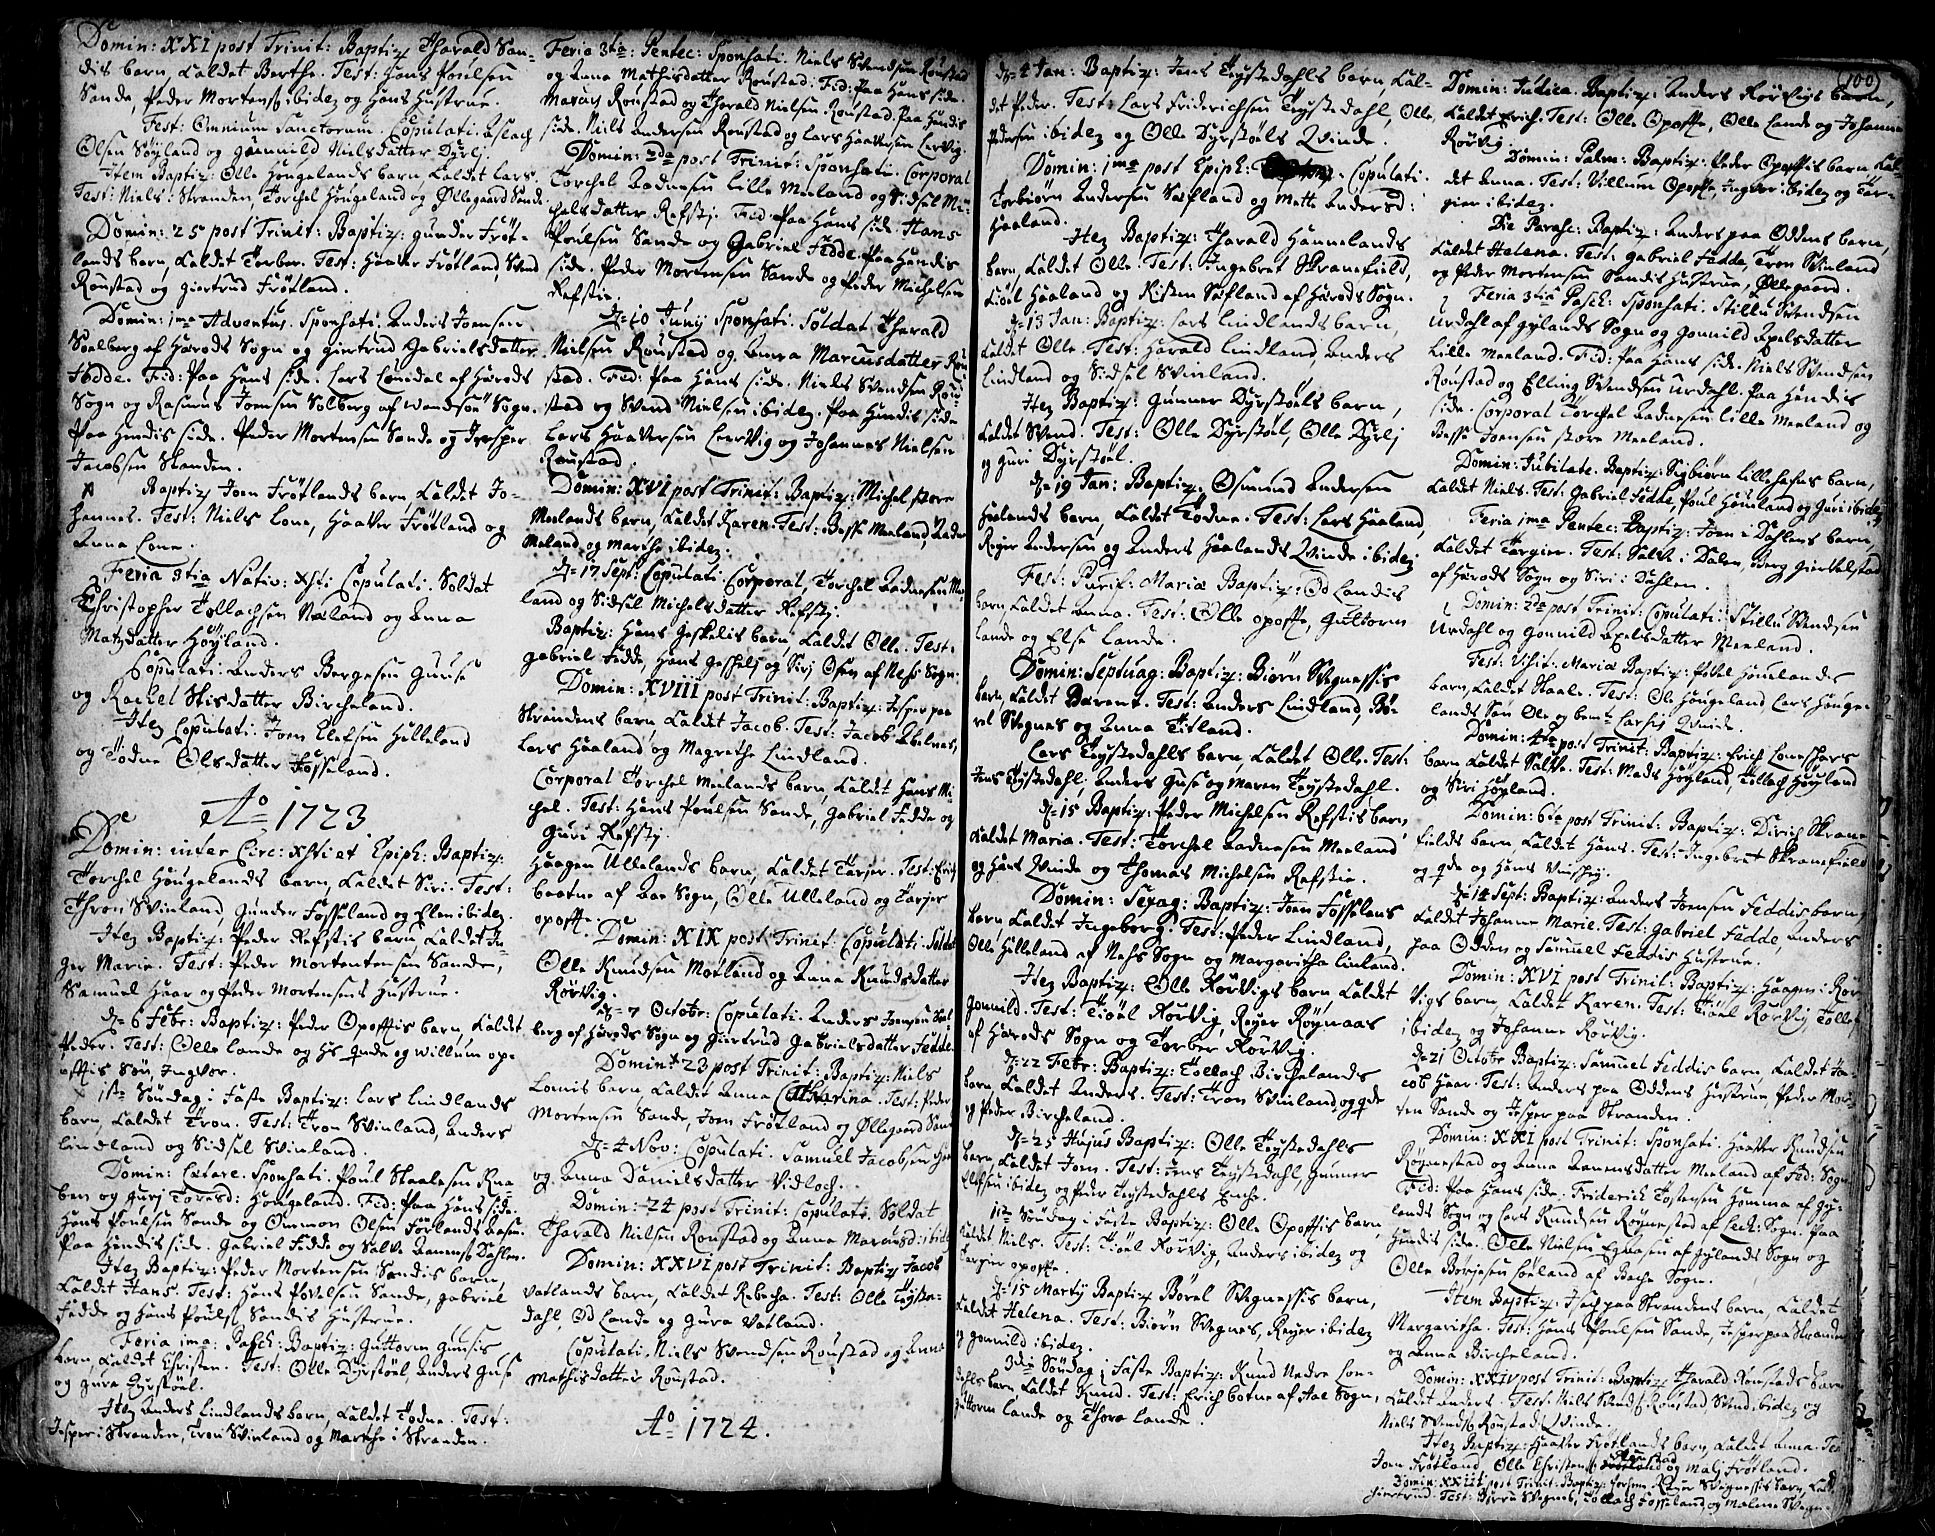 Domin: XXI post Trinit: Baptiz Tharald San-
dis barn, kaldet Berthe. Test: Hans Poulsen
Sande, Peder Mortens ibidem og Hans Hustrue.
Fest: Omnium Sanctorum. Copulati. Aslach
Olsen Söyland og gunnild Nielsdatter Dyrlj.
Item Baptiz: Olle Hougelands barn kaldet Lars.
Test: Niels i Stranden, Torchel Hougeland og Øllegaard Sande.
Domin: 25 post Trinit: Baptiz: gunder Fröt-
lands barn, kaldet Torber. Test: Haaver Frötland, Svend
Roustad og giertrud Frötland.
Domin: 1ma Adventus. Sponsati. Anders Joensen
Soelberg af Herods Sogn og giertrud Gabrielsdatter
Fedde. Fid: Paa Hans side. Lars Lonedal af Herods
Sogn og Rasmus Joensen Solberg af Sogn.
Paa Hendis side. Peder Mortensen Sande og Jesper
Jacobsen Stranden.
Baptiz Joen Frötlands barn kaldet Jo-
hannes. Test: Niels Lone, Haaver Frötland og
Anna Lone.
Feria 3tia Nativ: Xsti Copulati. Soldat
Christopher Tollachsen Næland og Anna
Matzdatter Höyland.
Copulati: Anders Borgesen Gunse
og Rachel Stisdatter Bircheland.
Item Copulati. Joen Elefsen Hilleland
og Todne Olsdatter Fosseland.
Ao 1723
Domin: inter Circ: Xsti et Epiph: Baptiz:
Torchel Hougelands barn, kaldet Siri. Test:
Thron Svinland, Gunder Fosseland og Elen ibidem.
Item Baptiz: Peder Refstis barn kaldet In-
ger Marie. Test: Peder Mortentensen Sande,
Samuel Haar og Peder Mortensens Hustrue.
d= 6 Febr: Baptiz: Peder Opofftis barn, kaldet
Peder. Test: Olle Lande og Hs qvde og Willum op-
offtis Sön, Ingvor.
1ste Söndag i Faste Baptiz: Lars Lindlands
barn, kaldet Tron. Test: Tron Svinland, Anders
Lindland og Sidsel Svinland.
Domin: Letare. Sponsati. Poul Staalesen Rua
ben og gurj Toresd: Hougeland. Fid: Paa Hans side.
Hans Poulsen Sande og Ommon Olsen Förlands
Paa Hendis side. Gabriel Fedde og Salve Dahlen.
Item Baptiz: Peder Mortensen Sandis barn,
kaldet Hans. Test: Hans Povelsen Sande, gabriel
Fedde og Hans Pouls: Sandis Hustrue.
Feria 1ma: Pasch: Baptiz: Guttorm Gunsis
barn, kaldet Christen. Test: Olle Dyrstöel, Anders Guse
og gura Dyrstöel.
Item Anders Lindlands barn, kaldet Todne. Test:
Jesper i Stranden, Tron Svinland og Marthe i Stranden.
Feria 3tia: Pentec: Sponsati. Niels Svendsen Roustad
og Anna Mathisdatter Roustad. Fid: Paa Hans side.
Marcus Roustad og Tharald Nielsen Roustad. Paa Hendis
side. Niels Andersen Roustad og Lars Haaversen Lervig.
Domin: 2da post Trinit: Sponsati. Corporal
Torchel Aadnesen Lille Meeland og Sidsel Mi-
chelsdatter Refstj. Fid: Paa Hans side. Hans
Poulsen Sande og Gabriel Fedde. Paa Hendis
side. Peder Mortensen Sande og Peder Michelsen
Refstie.
d= 10 Junij Sponsati. Soldat Tharald
Nielsen Roustad og Anna Marcusdatter Rou-
stad. Fid: Paa Hans side. Niels Svendsen Rou-
stad og Svend Nielsen ibidem. Paa Hendis side
Lars Haaversen Lervig og Johannes Nielsen
Roustad.
Domin: XVI post Trinit: Baptiz: Michel store
Meelands barn, kaldet Karen. Test: Basse Meeland, Aadne
Meland og Marthe ibidem.
d= 17 Sept: Copulati. Corporal, Torchel Aadnesen Mee-
land og Sidsel Michelsdatter Refstj.
Baptiz: Hans Geskelis barn, kaldet Olle. Test:
gabriel Fedde, Hans Geskelj og Sirj Osen af Nehs Sogn.
Domin: XVIII post Trinit: Baptiz: Jesper paa
Strandens barn kaldet Jacob. Test: Jacob Abelnes,
Lars Haaland og Magrethe Lindland.
Corporal Torchel Meelands barn, kaldet Hans Mi-
chel. Test: Hans Poulsen Sande, Gabriel Fedde og
Guri Refstj.
Haagen Ullelands barn, kaldet Tarjer. Test: Erich
bootne af Aae Sogn, Olle Ulleland og Tarjer
opofte.
Domin: XIX post Trinit. Copulati. Soldat
Olle Knudsen Mortland og Anna Knudsdatter
Rörvig.
d= 7 Octobr: Copulati. Anders Joensen Soel-
berg af Herods Sogn og Giertrud Gabrielsdatter Fedde.
Domin: 23 post Trinit: Baptiz: Niels
Lonis barn, kaldet Anna Catharina. Test: Peder
Mortensen Sande, Joen Frötland og Øllegaard Sande
d= 4 Nov: Copulati. Samuel Jacobsen
og Anna Danielsdatter Vidloch.
Domin: 24 post Trinit: Copulati Soldat
Tharald Nielsen Roustad og Anna Marcusd: ibidem
Domin: XXVI post Trinit: Baptiz Jacob
Vatlands barn, kaldet Rebecha. Test: Olle Töyste-
dahl, Od Lande og Gura Vatland.
Copulati. Niels Svendsen Roustad og Anna
Mathisdatter Roustad.
Ao 1724.
d= 2 Jan: Baptiz: Jens Töystedahls barn, kal-
det Peder. Test: Lars Friderichsen Töystedahl, Olle
Pedersen ibidem og Olle Dyrstöls Qvinde.
Domin: 1ma post Epiph: Copulati.
Torbiörn Andersen Næfland og Mett. Andersd:
Haaland.
Item Baptiz: Tharald Hannelands
barn, kaldet Olle. Test: Ingebret Skranefield,
Lisel Haaland og Kisten Næfland af Herods Sogn.
d= 13 Jan: Baptiz: Lars Lindlands barn,
kaldet Olle. Test: Harald Lindland, Anders
Lindland og Sidsel Svinland.
Item Baptiz: Gunner Dyrstöels barn,
kaldet Svend. Test: Olle Dyrstöel, Olle Dyrlj
og Guri Dyrstöel.
d= 19 Jan: Baptiz: Osmund Andersen
Haalands barn, kaldet Todne. Test: Lars Haaland,
Reyer Andersen og Anders Haalands Qvinde ibidem
Fest: Purif: Mariæ Baptiz: Od Landis
barn kaldet Anna. Test: Olle opofte, Guttorm
Lande og Else Lande.
Domin: Septuag: Baptiz: Biörn Svegnessis
barn, kaldet Barent. Test: Anders Lindland, Bö-
rel Svegnes og Anna Titland.
Lars Töystedahls barn, kaldet Olle. Test:
Jens Töystedahl, Anders Guse og Maren Töystedahl.
d= 15 Baptiz: Peder Michelsen Refstis barn,
kaldet Maria. Test: Torchel Aadnesen Meeland
og Hans Qvinde og Thomas Michelsen Refstie.
Domin: Sexag: Baptiz: Joen Fosselans
barn, kaldet Ingeborg. Test: Peder Lindland,
Olle Hilleland af Nehs Sogn og Margaritha Linland.
Item Baptiz: Olle Rörvigs barn kaldet
Gonnild. Test: Tiöel Rörvig, Reyer Röynaas
af Herods Sogn og Torber Rörvig.
d= 22 Febr: Baptiz: Tollach Birchelands
barn, kaldet Anders. Test: Tron Svinland og qde
og Peder Bircheland.
d= 25 Hujus Baptiz: Olle Töystedahls
barn kaldet Joen. Test: Jens Töystedahl, Gunner
Elefsen ibidem og Peder Töystedahls Enche.
1ste Söndag i Faste Baptiz: Olle Opofftis barn,
kaldet Niels. Test: Tiöel Rörvig, Anders ibidem og
Targier opofte.
d= 15 Martij Baptiz Börel Svegnessis barn,
kaldet Helena. Test: Biörn Svegnes, Reyer ibidem
og gonnild ibidem.
3die Söndag i Faste Baptiz: Knud Nedre Lone-
dahls barn, kaldet Knud. Test: Erich botne af Aae Sogn,
Guttorm Lande og Thora Lande.
100
Domin: Judica. Baptiz: Anders Rörvigs barn,
kaldet Erich. Test: Olle Opofte, Olle Lande og Johanne
Rörvig.
Domin: Palm: Baptiz: Peder Opofftis barn, kal-
det Anna. Test: Villum Opofte, Ingbor ibidem og Tar-
gier ibidem.
Die Parasc: Baptiz: Anders paa Oddens barn,
kaldet Helena. Test: gabriel Fedde, Tron Svinland
og Peder Mortensen Sandis Hustrue, Øllegaard.
Feria 3tia Pasch: Sponsati. Stillu Svendsen
Urdahl af Gylands Sogn og Gonnild Axelsdatter
Lille Meeland. Fid: Paa Hans side. Niels Svendsen
Roustad og Elling Svendsen Urdahl. Paa Hendis
side. Corporal Torchel Aadnesen Lille Meeland og
Basse Joensen store Meeland.
Domin: Jubilate. Baptiz: Sigbiörn Lillehafis barn,
kaldet Niels. Test: Gabriel Fedde, Poul Houland og Guri ibidem.
Feria 1ma Pentec: Baptiz: Joen i Dahlens barn,
kaldet Torgier. Test: Salve i Dalen, Berg Giervelstad
af Herods Sogn og Siri i Dahlen.
Domin: 2da post Trinit: Copulati: Stillu Svendsen
Urdahl og Gonnild Axelsdatter Meeland.
Fest: Visit. Mariæ Baptiz: Povel Hovelandes
barn, kaldet Staale. Test: Ole Hougeland Lars Houge-
lands Sön Ole og bemte Larsis Qvinde.
Domin: 4ta post Trinit: Baptiz: Erich
barn kaldet Salve. Test: Mads Höyland, Tollach Höyland
og Siri Höyland.
Domin: 6ta post Trinit: Baptiz: Dirich Skrane-
fields barn, kaldet Hans. Test: Ingebret Skranefield
og qde og Hans
d= 14 Sept: Baptiz: Anders Joensen Feddis barn,
kaldet Johanne Marie. Test: Gabriel Fedde, Anders
paa Odden og Samuel Feddis Hustrue.
Domin: XVI post Trinit: Baptiz: Haagen i Rör-
vigs barn, kaldet Karen. Test: Tiöel Rörvig, Tollef
ibidem og Johanne Rörvig.
d= 21 Octobr Baptiz: Samuel Feddis barn kaldet Ja-
cob Haar. Test: Anders paa Oddens Hustrue, Peder Mor-
ten Sande og Jesper paa Stranden.
Domin: XXI post Trinit: Sponsati. Haaver Knudsen
Röynestad og Anna Aanensdatter Meeland af Fed: Sogn
Fid: Paa Hans side: Friderich Tostensen Homma af Gy-
lands Sogn og Lars Knudsen Röynestad af Led: Sogn. paa
Hendis side. Olle Nielsen Egeosen af Gylands Sogn og
Olle Borjesen Soeland af Bache Sogn.
Item Baptiz: Isach paa Strandens barn, kaldet
Margaritha. Test: Hans Poulsen Sande, Jesper paa Stranden
og Anna Bircheland.
Domin: XXIV post Trinit: Baptiz Tharald Roustads barn
kaldet Anders. Test: Niels Svends: Roustad, Svend ibidem og
Niels Svends: Roustad Qvinde.
Item Baptiz: Haaver Frötlands barn, kaldet Anna. Test:
Joen Frötland, Olle Christensen og Malj Frötland.
Domin: XXIII post Trinit: Baptiz: Reyer Svegnessis barn, kald:
Giertrud. Test: Börre Svegnes, Tollach Fosseland, og Malene Svegn-